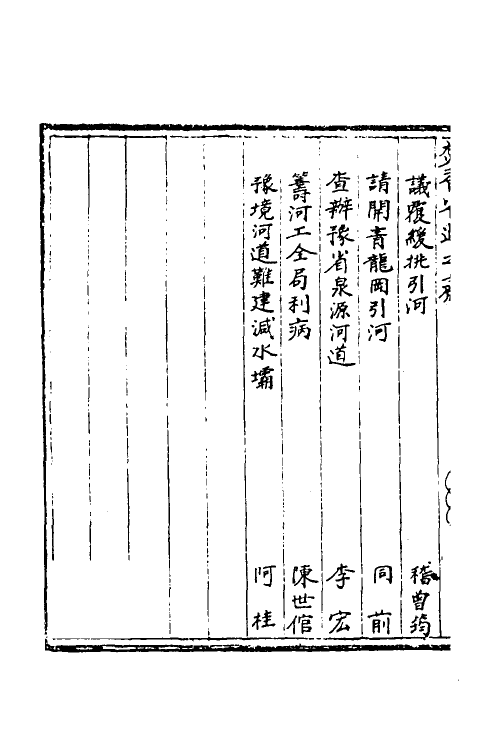 議覆緩挑引河　嵇曾筠
請開青龍岡引河　同前
查辦豫省泉源河道　李宏
籌河工全局利病　陳世倌
豫境河道難建減水壩　阿桂